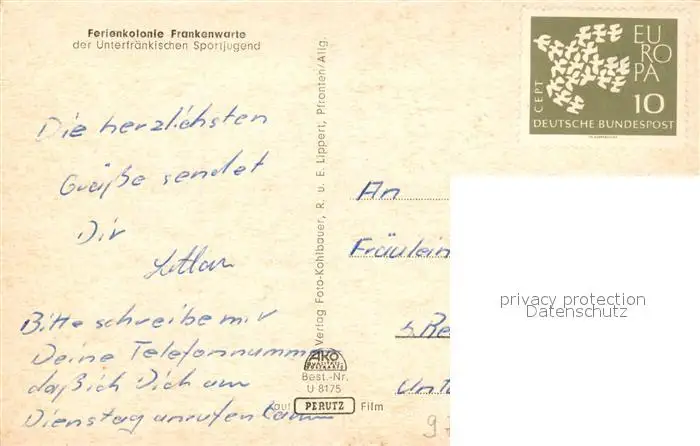 Ferienkolonie Frankenwarte
der Unterfränkischen Sportjugend
Die herzlichsten
Grüße sendet
Dir
Bitte schreibe mir
Deine Telefonnummer
daß ich Dich am
Dienstag anrufen kann
Verlag Foto-Kohlbauer, R. u. E. Lippert, Pfronten/Allg.
AKO
Best.-Nr.
U 8175
auf PERUTZ Film
EU
RO
PA
CEPT
10
DEUTSCHE BUNDESPOST
An
Fräulein
privacy protection
Datenschutz